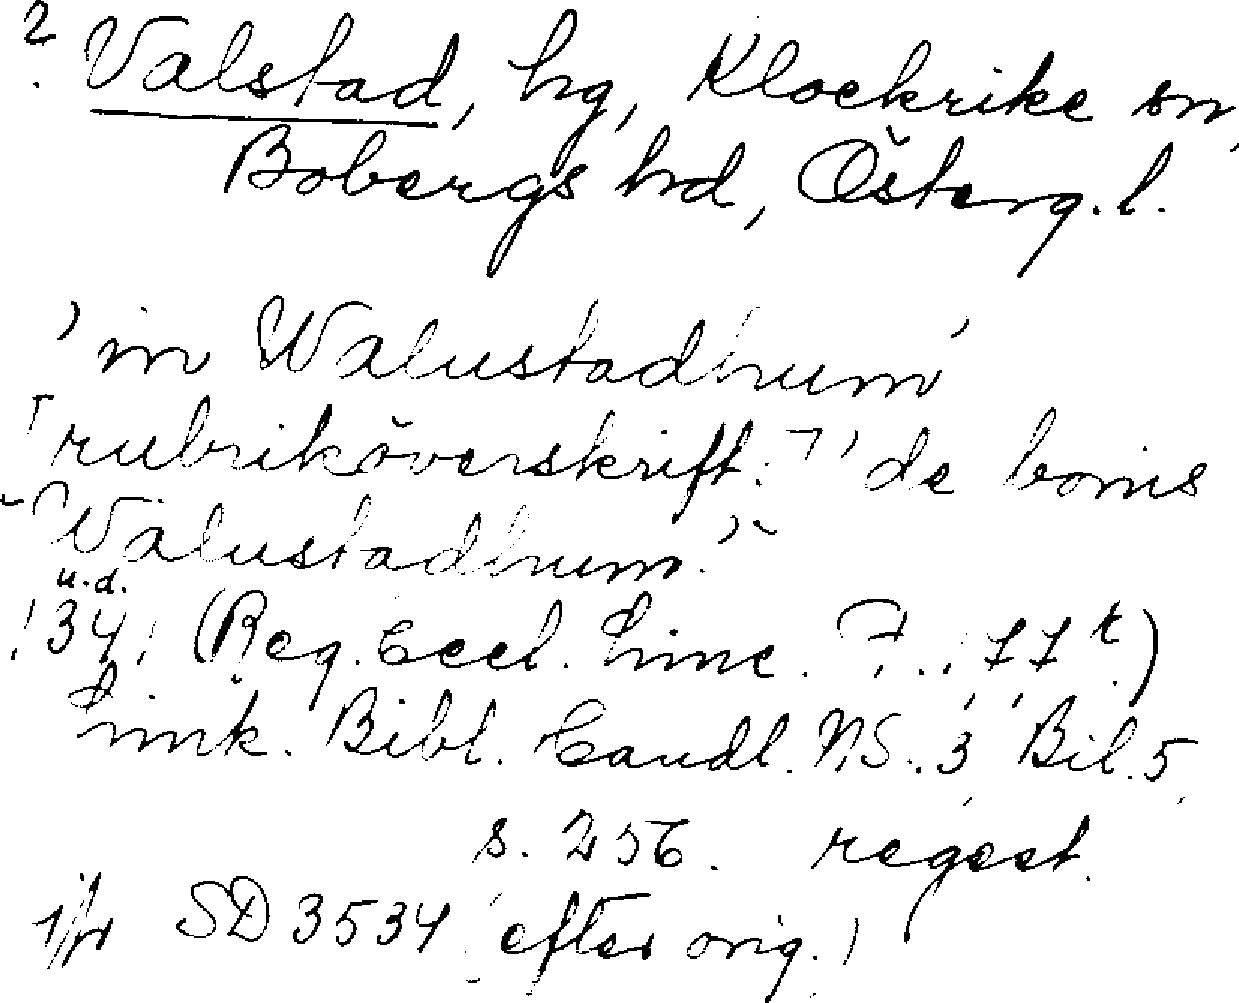 ? Valstad, hg, Klockrike sn,
Bobergs hd, Österg. l.
'in Walustadhum'
⌈rubriköverskrift:⌉ 'de bonis
Walustadhum.'
u.d.
134. (Reg. Eccl. Linc. 77r)
Link. Bibl. Handl. NS. 3, Bil. 5,
s. 256. regest.
jfr SD 3534 efter orig.)